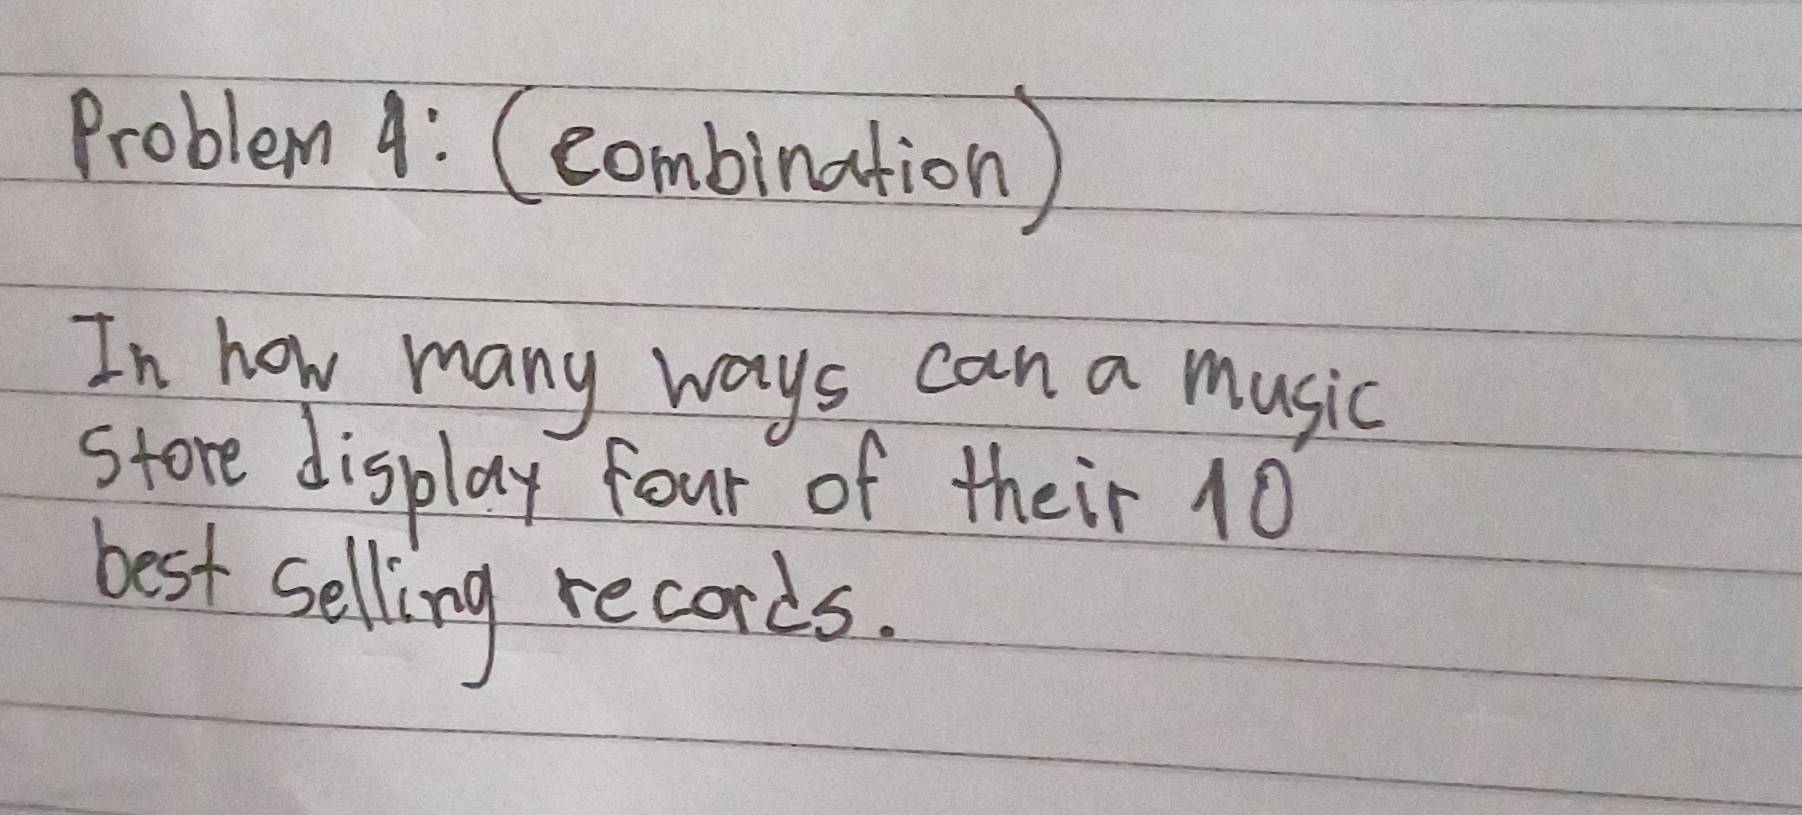 Problem 4: (combination)
In how many ways can a music
store display four of their 10
best selling records.